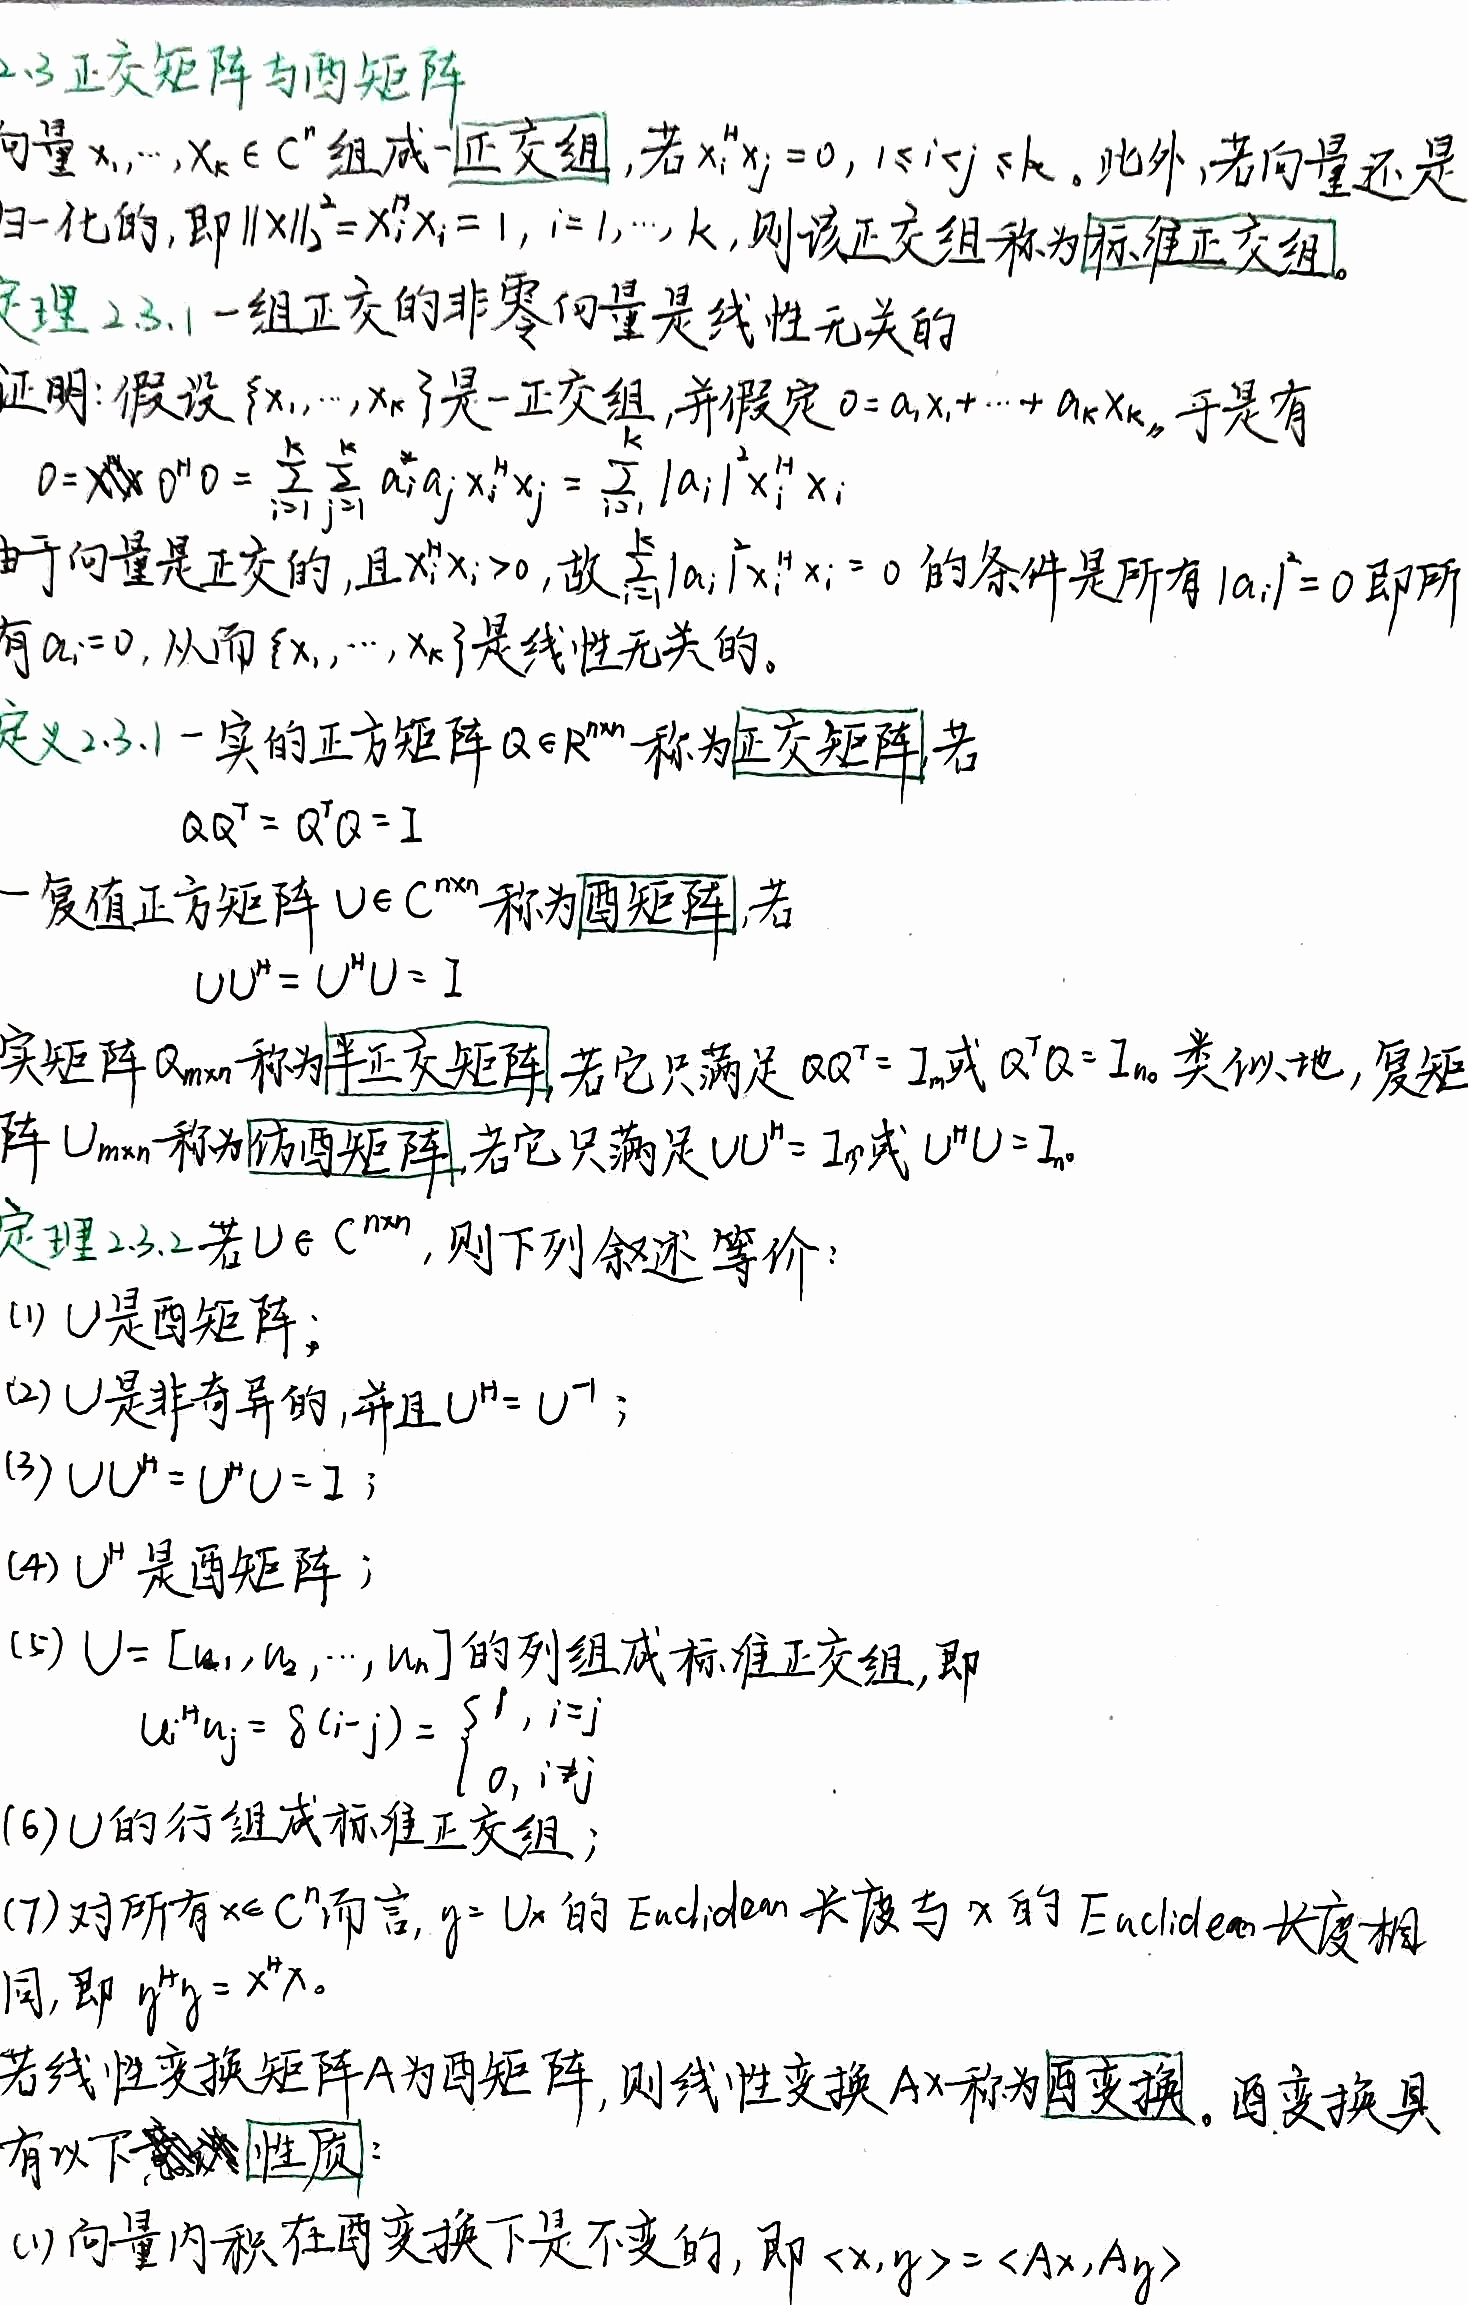 2.3 正交矩阵与酉矩阵
向量 x₁,…,xₖ ∈ Cⁿ 组成一正交组,若 xᵢᴴxⱼ = 0, 1≤i<j≤k。此外,若向量还是
归一化的,即 ||x||₂² = xᵢᴴxᵢ = 1, i=1,…,k,则该正交组称为标准正交组。
定理 2.3.1 一组正交的非零向量是线性无关的
证明:假设 {x₁,…,xₖ} 是一正交组,并假定 0 = a₁x₁+…+aₖxₖ,, 于是有
0 = 0ᴴ0 = ∑_{i=1}^{k} ∑_{j=1}^{k} aᵢ* aⱼ xᵢᴴ xⱼ = ∑_{i=1}^{k} |aᵢ|² xᵢᴴ xᵢ
由于向量是正交的,且 xᵢᴴxᵢ>0,故 ∑_{i=1}^{k} |aᵢ|² xᵢᴴ xᵢ = 0 的条件是所有 |aᵢ|² = 0 即所
有 aᵢ=0,从而 {x₁,…,xₖ} 是线性无关的。
定义 2.3.1 一实的正方矩阵 Q∈Rⁿˣⁿ 称为正交矩阵,若
QQᵀ = QᵀQ = I
一复值正方矩阵 U∈Cⁿˣⁿ 称为酉矩阵,若
UUᴴ = UᴴU = I
实矩阵 Qₘₓₙ 称为半正交矩阵,若它只满足 QQᵀ = Iₘ 或 QᵀQ = Iₙ。类似地,复矩
阵 Uₘₓₙ 称为仿酉矩阵,若它只满足 UUᴴ = Iₘ 或 UᴴU = Iₙ。
定理 2.3.2 若 U∈Cⁿˣⁿ,则下列叙述等价:
(1) U是酉矩阵;
(2) U是非奇异的,并且 Uᴴ = U⁻¹;
(3) UUᴴ = UᴴU = I;
(4) Uᴴ 是酉矩阵;
(5) U = [u₁,u₂,…,uₙ] 的列组成标准正交组,即
uᵢᴴuⱼ = δ(i-j) = { 1, i=j
0, i≠j
(6) U的行组成标准正交组;
(7) 对所有 x∈Cⁿ 而言, y = Ux 的 Euclidean 长度与 x 的 Euclidean 长度相
同,即 yᴴy = xᴴx。
若线性变换矩阵A为酉矩阵,则线性变换 Ax 称为酉变换。酉变换具
有以下性质:
(1) 向量内积在酉变换下是不变的,即 <x,y> = <Ax,Ay>